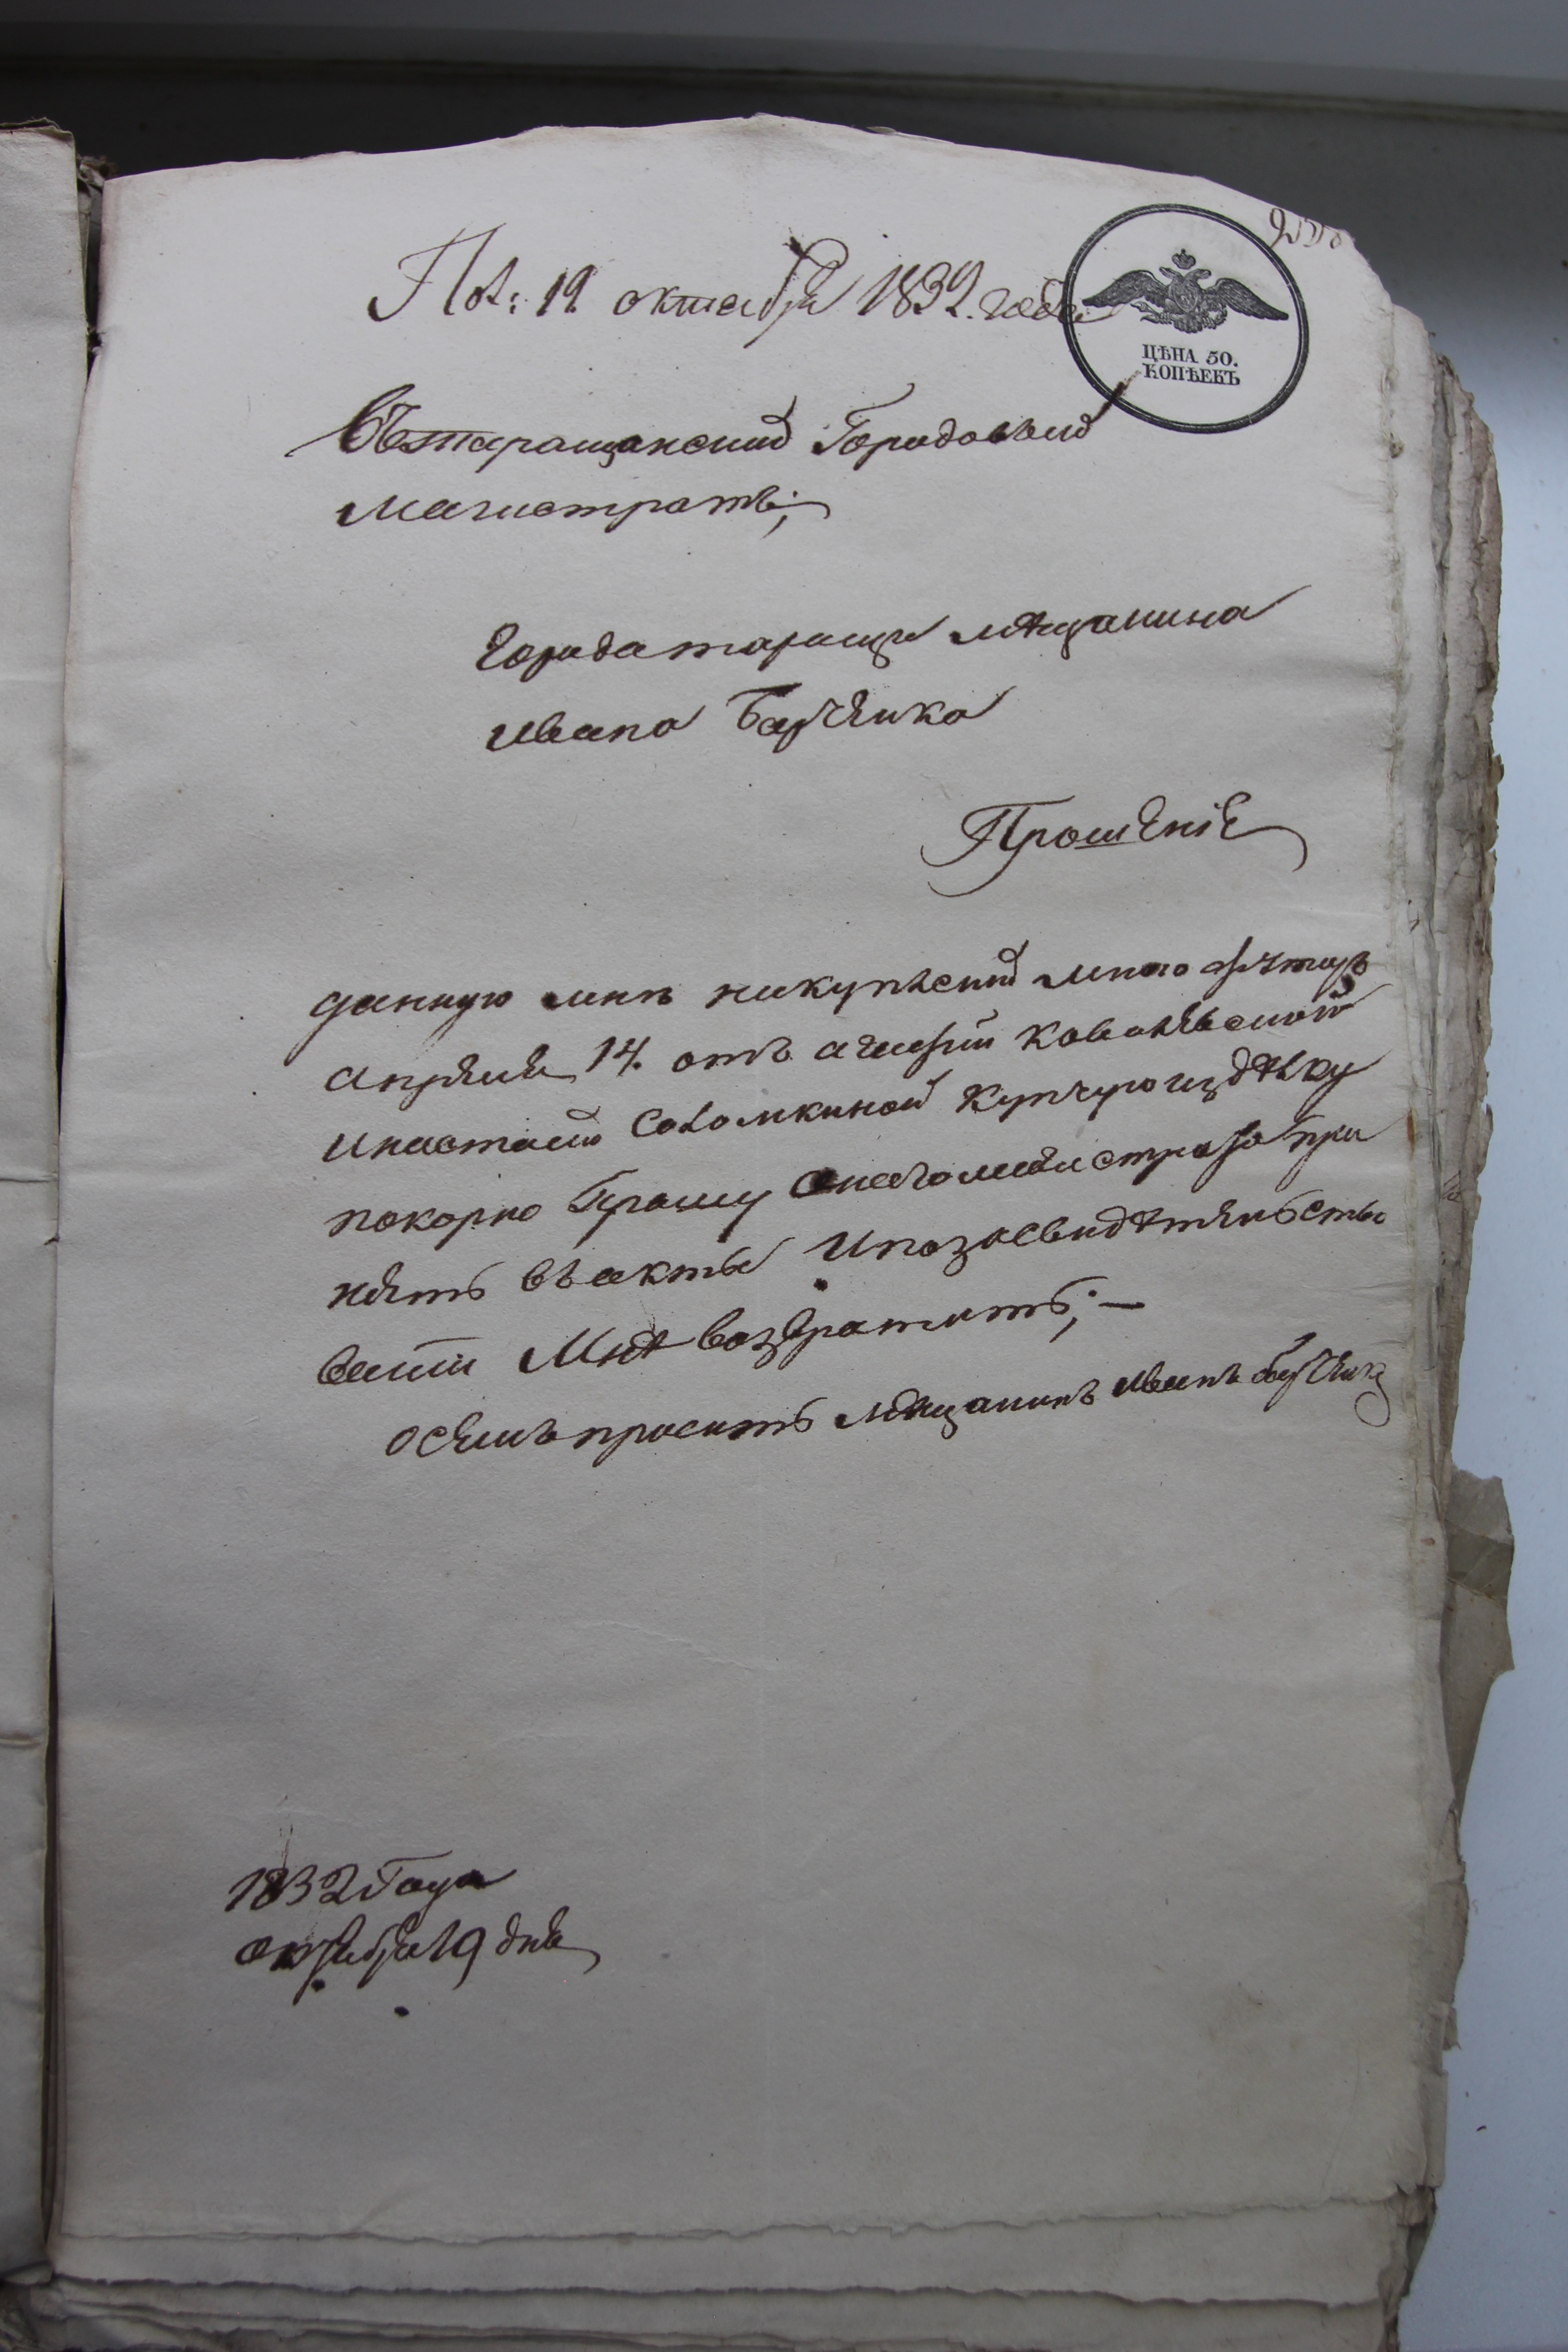 Пол: 19. октября 1832. года
ЦѢНА 50.
КОПѢЕКЪ
Въ таращанский Городовый
Магистратъ;
Города таращи мѣщанина
Ивана Барченка
Прошеніе
данную мнѣ накупленный мною
апреля 14. отъ Ковалевской
Инастасіи Соломкиной Купчую издѣлку
покорно Прошу Онаго магистрата при
нять въ акты Ипозасвидѣтельство
ваніи Мнѣ возвратить; —
осемъ проситъ мѣщанинъ Иванъ барченко
1832 Года
октября 19 дня